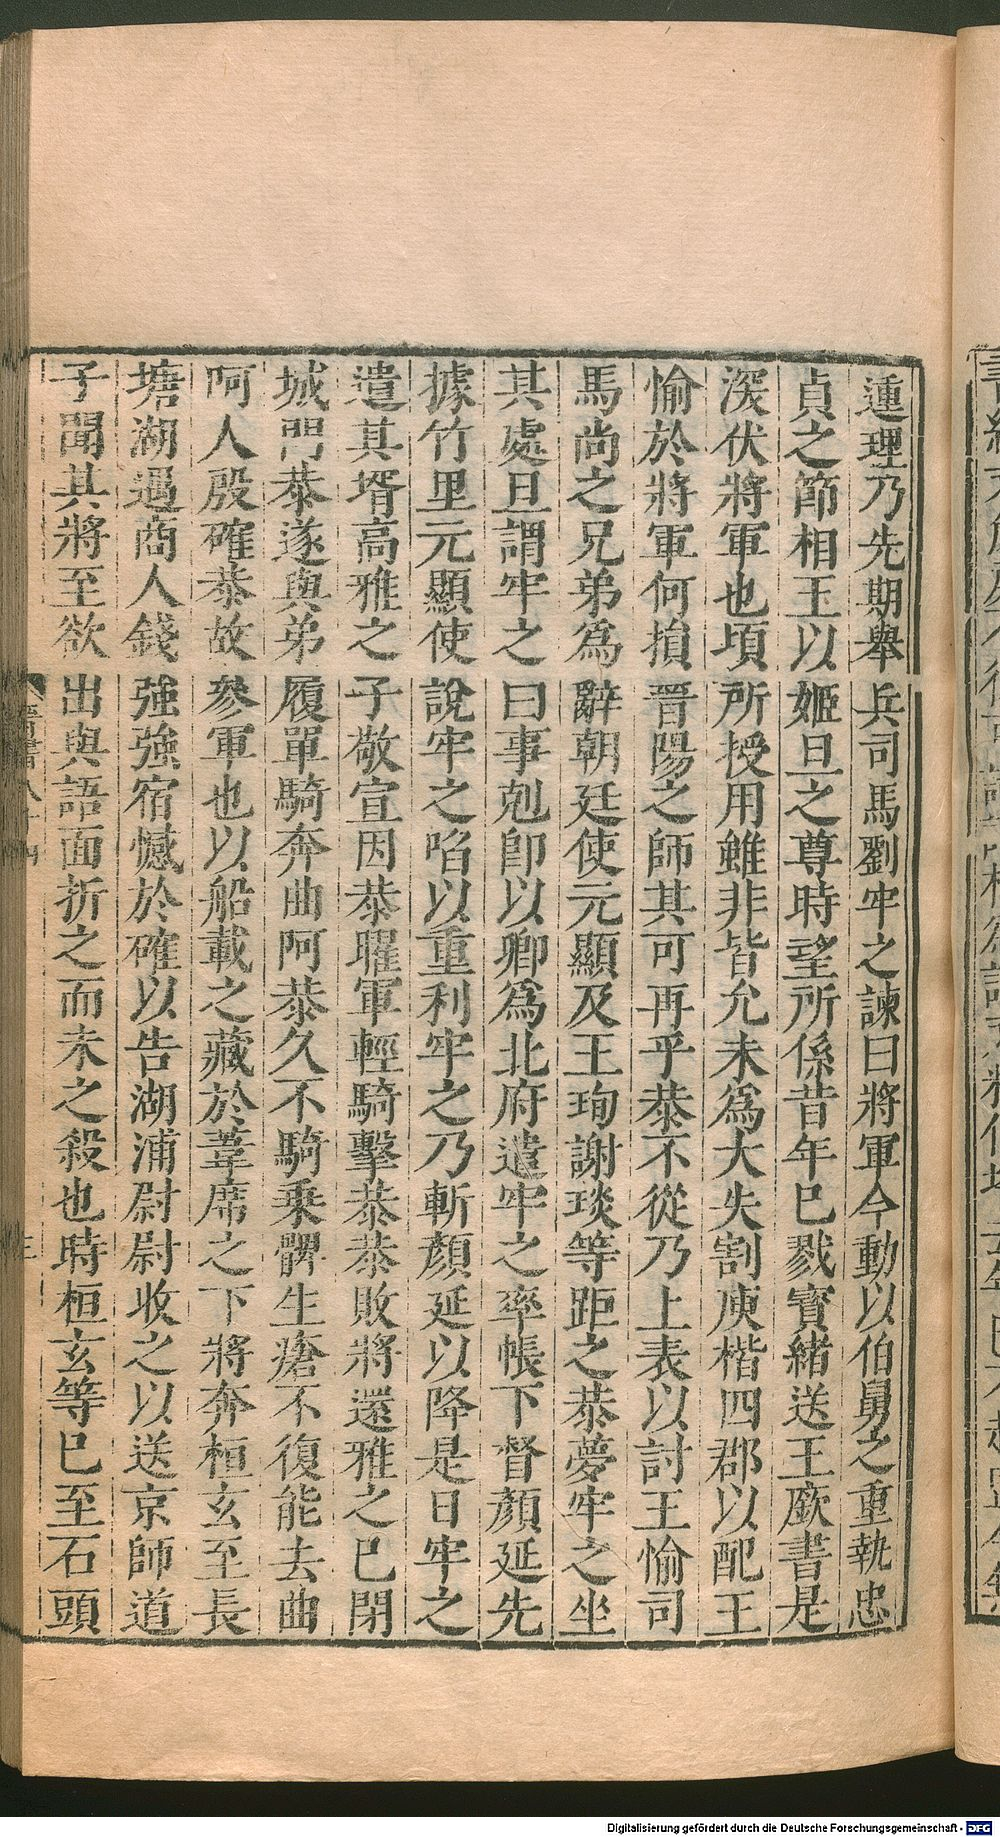 連理乃先期舉兵司馬劉牢之諫曰將軍今動以伯舅之重執忠
貞之節相王以姬旦之尊時望所係昔年已戮寶緒送王廞書是
深伏將軍也頃所授用雖非皆允未爲大失割庾楷四郡以配王
愉於將軍何損晉陽之師其可再乎恭不從乃上表以討王愉司
馬尚之兄弟爲辭朝廷使元顯及王珣謝琰等距之恭夢牢之坐
其處旦謂牢之曰事剋卽以卿爲北府遣牢之率帳下督顏延先
據竹里元顯使說牢之啗以重利牢之乃斬顏延以降是日牢之
遣其壻高雅之子敬宣因恭曜軍輕騎擊恭恭敗將還雅之已閉
城門恭遂與弟履單騎奔曲阿恭久不騎乗髀生瘡不復能去曲
阿人殷確恭故參軍也以船載之藏於葦席之下將奔桓玄至長
塘湖遇商人錢強強宿憾於確以告湖浦尉尉收之以送京師道
子聞其將至欲出與語面折之而未之殺也時桓玄等已至石頭
晉書八十四
三
Digitalisierung gefördert durch die Deutsche Forschungsgemeinschaft - DFG